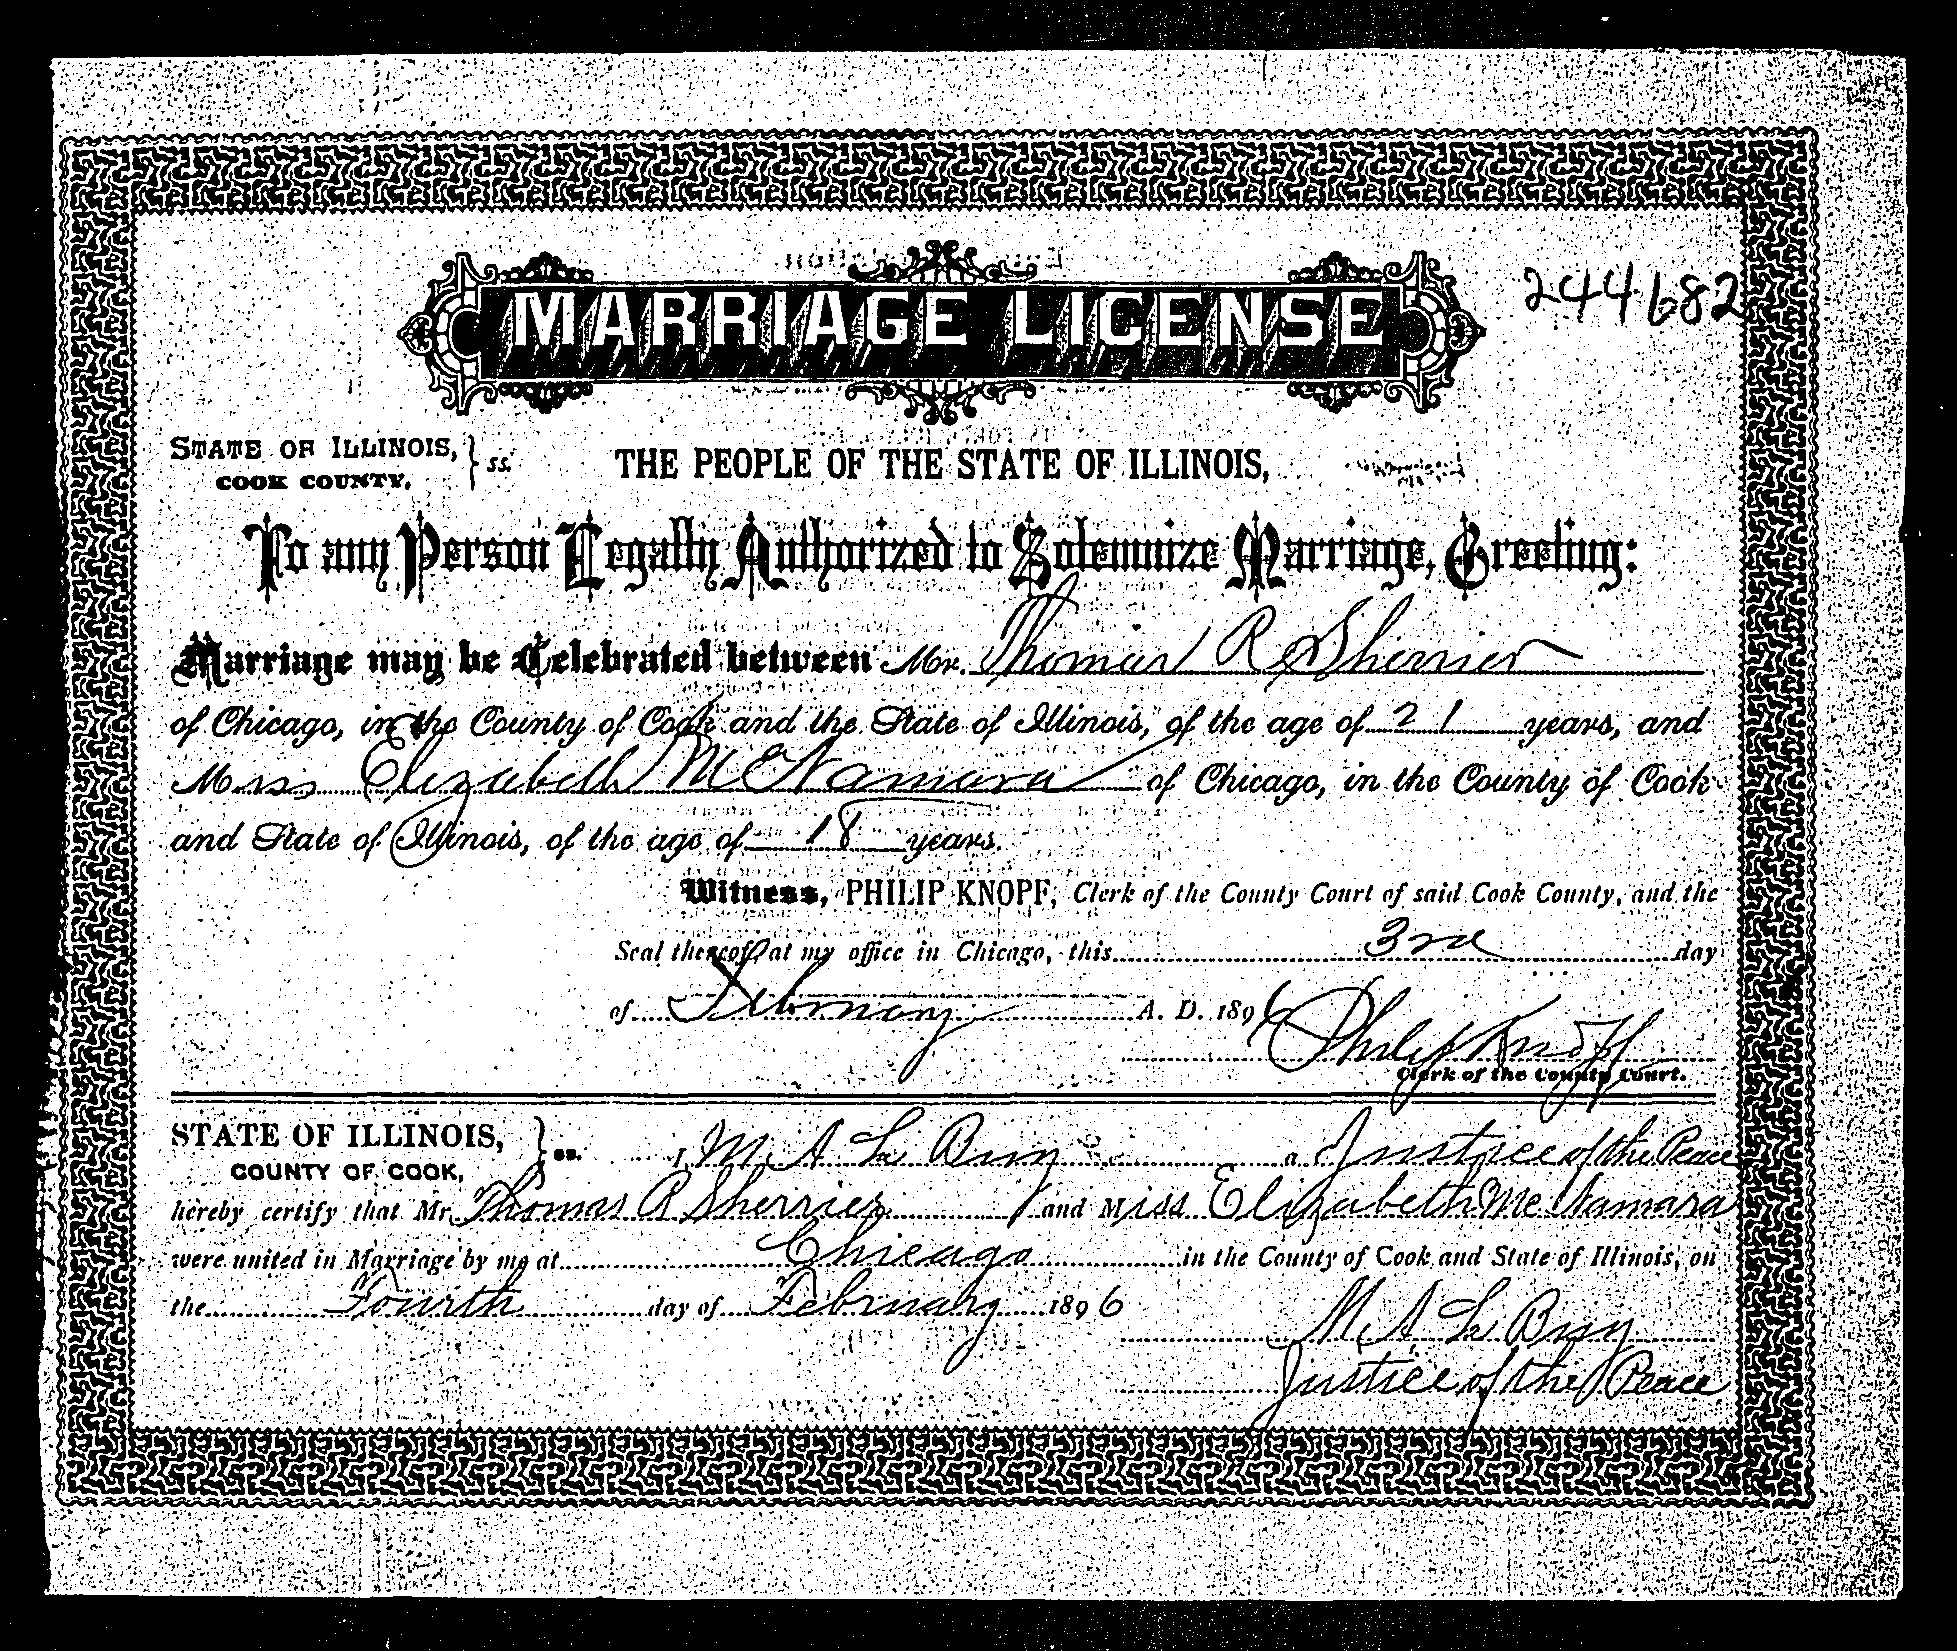 MARRIAGE LICENSE
244682
STATE OF ILLINOIS, } ss.
COOK COUNTY.
THE PEOPLE OF THE STATE OF ILLINOIS,
To any Person Legally Authorized to Solemnize Marriage, Greeting:
Marriage may be Celebrated between Mr. Thomas R Sherrier
of Chicago, in the County of Cook and the State of Illinois, of the age of 21 years, and
Miss Elizabeth McNamara of Chicago, in the County of Cook
and State of Illinois, of the age of 18 years.
Witness, PHILIP KNOPF, Clerk of the County Court of said Cook County, and the
Seal thereof, at my office in Chicago, this 3rd day
of February A. D. 1896
Philip Knopf
Clerk of the County Court.
STATE OF ILLINOIS, } ss.
COUNTY OF COOK,
I, M A La Buy a Justice of the Peace
hereby certify that Mr. Thomas R Sherrier and Miss Elizabeth McNamara
were united in Marriage by me at Chicago in the County of Cook and State of Illinois, on
the Fourth day of February 1896
M A La Buy
Justice of the Peace